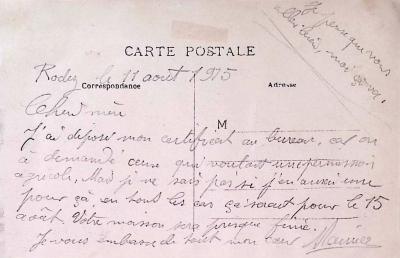 Je pense que vous
allez bien, moi aussi.
CARTE POSTALE
Rodez le 11 août 1915
Correspondance
Adresse
Cher mère
M
J'ai déposé mon certificat au bureau, car on
à demandé ceux qui voulait une permission
agricole, Mais je ne sais pas si j'en aurai une
pour ça en tout cas car ça serait pour le 15
août. Votre moisson sera presque finie.
Je vous embrasse de tout mon cœur Maurice